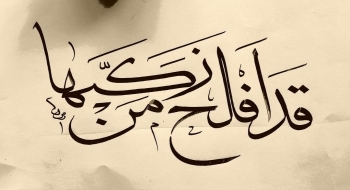 قد أفلح من زكّىٰها